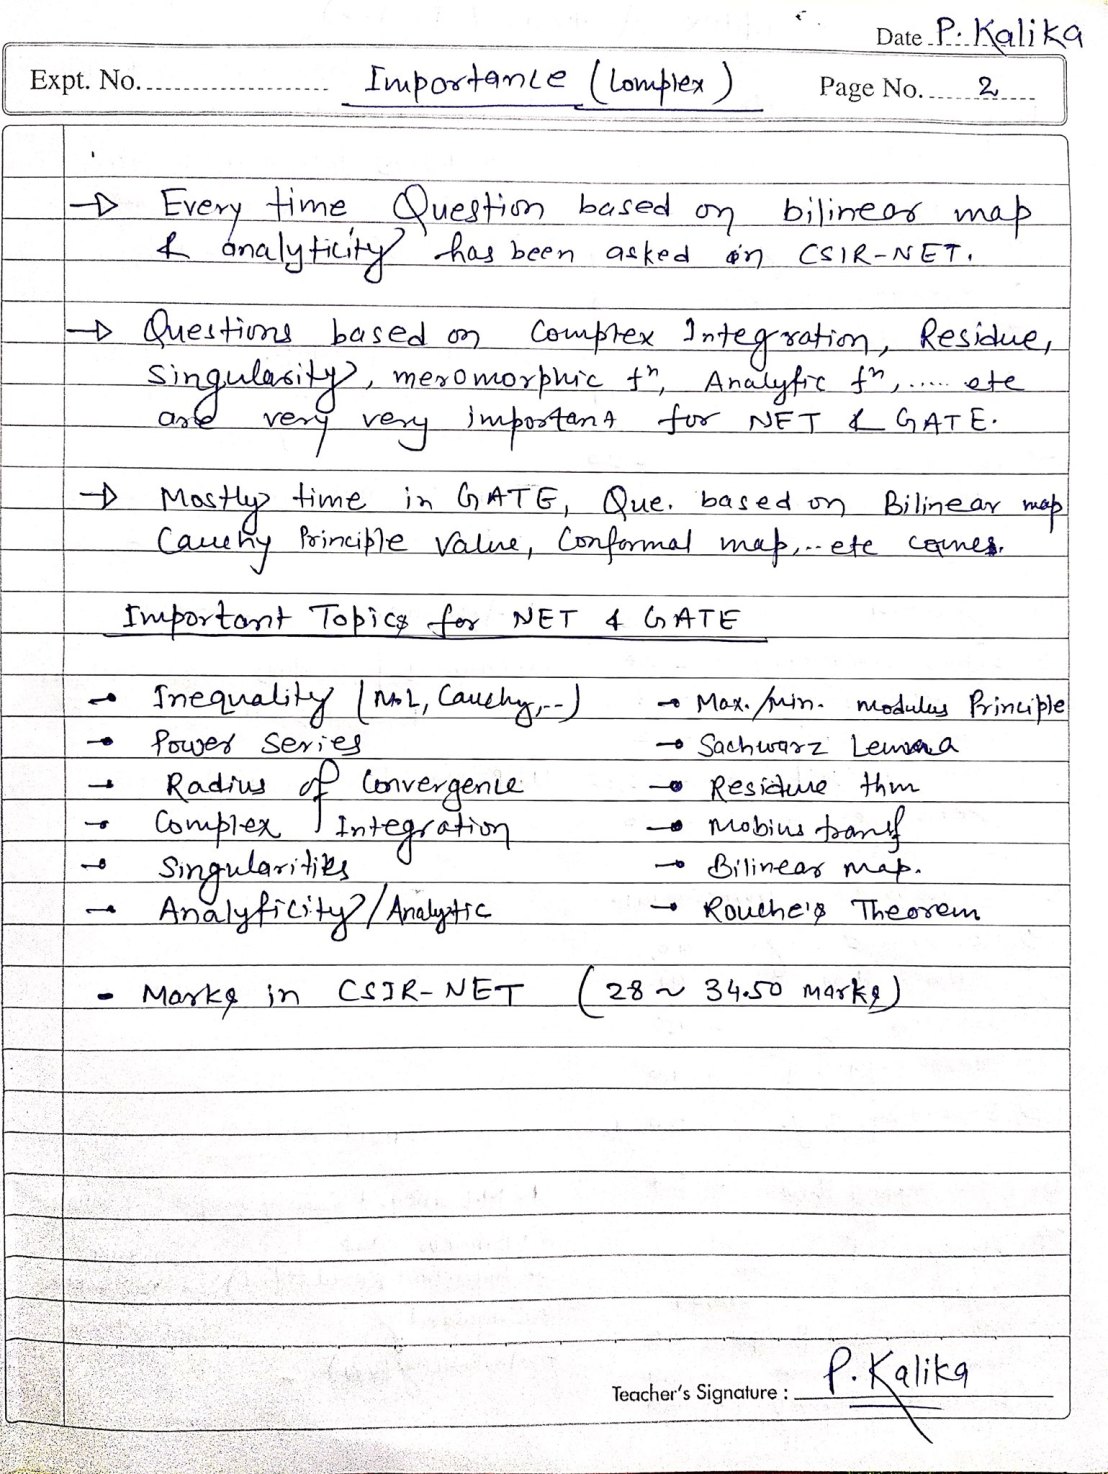 Date P. Kalika
Expt. No. Importance (Complex) Page No. 2
→ Every time Question based on bilinear map
& analyticity has been asked in CSIR-NET.
→ Questions based on Complex Integration, Residue,
Singularity, meromorphic fⁿ, Analytic fⁿ,..... etc
are very very important for NET & GATE.
→ Mostly time in GATE, Que. based on Bilinear map
Cauchy Principle Value, Conformal map,.. etc comes.
Important Topics for NET & GATE
→ Inequality (M-L, Cauchy,--) → Max./min. modulus Principle
→ Power Series → Sachwarz Lemma
→ Radius of Convergence → Residue thm
→ Complex Integration → Mobius transf
→ Singularities → Bilinear map.
→ Analyticity/Analytic → Rouche's Theorem
- Marks in CSIR-NET (28 ~ 34.50 Marks)
Teacher's Signature : P. Kalika